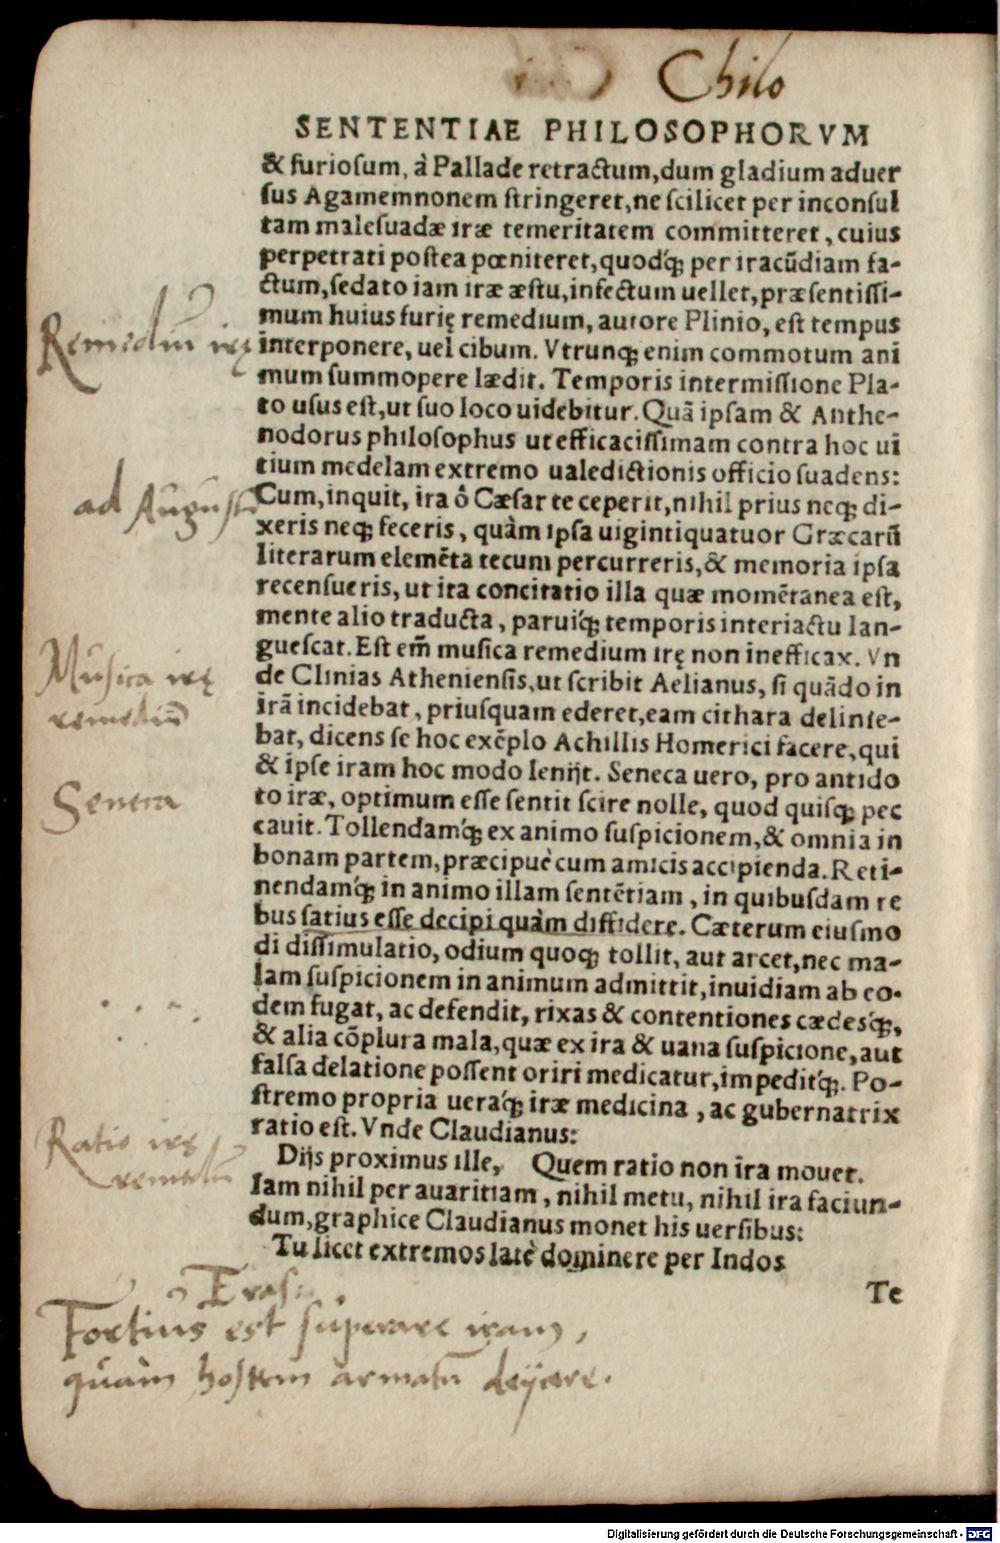 Chilo
SENTENTIAE PHILOSOPHORVM
& furiosum, à Pallade retractum, dum gladium aduer
sus Agamemnonem stringeret, ne scilicet per inconsul
tam malesuadæ iræ temeritatem committeret, cuius
perpetrati postea pœniteret, quodq́; per iracũdiam fa-
ctum, sedato iam iræ æstu, infectum uellet, præsentissi-
mum huius furię remedium, autore Plinio, est tempus
Remedium irę
interponere, uel cibum. Vtrunq; enim commotum ani
mum summopere lædit. Temporis intermissione Pla-
to usus est, ut suo loco uidebitur. Quã ipsam & Anthe-
nodorus philosophus ut efficacissimam contra hoc ui
tium medelam extremo ualedictionis officio suadens:
ad Augustũ
Cum, inquit, ira ô Cæsar te ceperit, nihil prius neq; di-
xeris neq; feceris, quàm ipsa uigintiquatuor Græcarũ
literarum elemẽta tecum percurreris, & memoria ipsa
recensueris, ut ita concitatio illa quæ momẽtanea est,
mente alio traducta, paruiq́; temporis interiactu lan-
guescat. Est em̃ musica remedium irę non inefficax. Vn
Musica irę
remediũ
de Clinias Atheniensis, ut scribit Aelianus, si quãdo in
irã incidebat, priusquam ederet, eam cithara delinie-
bat, dicens se hoc exẽplo Achillis Homerici facere, qui
& ipse iram hoc modo leniit. Seneca uero, pro antido
Seneca
to iræ, optimum esse sentit scire nolle, quod quisq; pec
cauit. Tollendamq́; ex animo suspicionem, & omnia in
bonam partem, præcipuè cum amicis accipienda. Reti-
nendamq́; in animo illam sentẽtiam, in quibusdam re
bus satius esse decipi quàm diffidere. Cæterum eiusmo
di dissimulatio, odium quoq; tollit, aut arcet, nec ma-
lam suspicionem in animum admittit, inuidiam ab eo-
dem fugat, ac defendit, rixas & contentiones cædesq́;,
& alia cõplura mala, quæ ex ira & uana suspicione, aut
falsa delatione possent oriri medicatur, impeditq́;. Po-
stremo propria ueraq́; iræ medicina, ac gubernatrix
ratio est. Vnde Claudianus:
Ratio irę
remediũ
Diis proximus ille, Quem ratio non ira mouet.
Iam nihil per auaritiam, nihil metu, nihil ira faciun-
dum, graphice Claudianus monet his uersibus:
Tu licet extremos latè dominere per Indos
Te
Eras:
Fortius est superare iram,
quàm hostem armatũ deijcere.
Digitalisierung gefördert durch die Deutsche Forschungsgemeinschaft - DFG